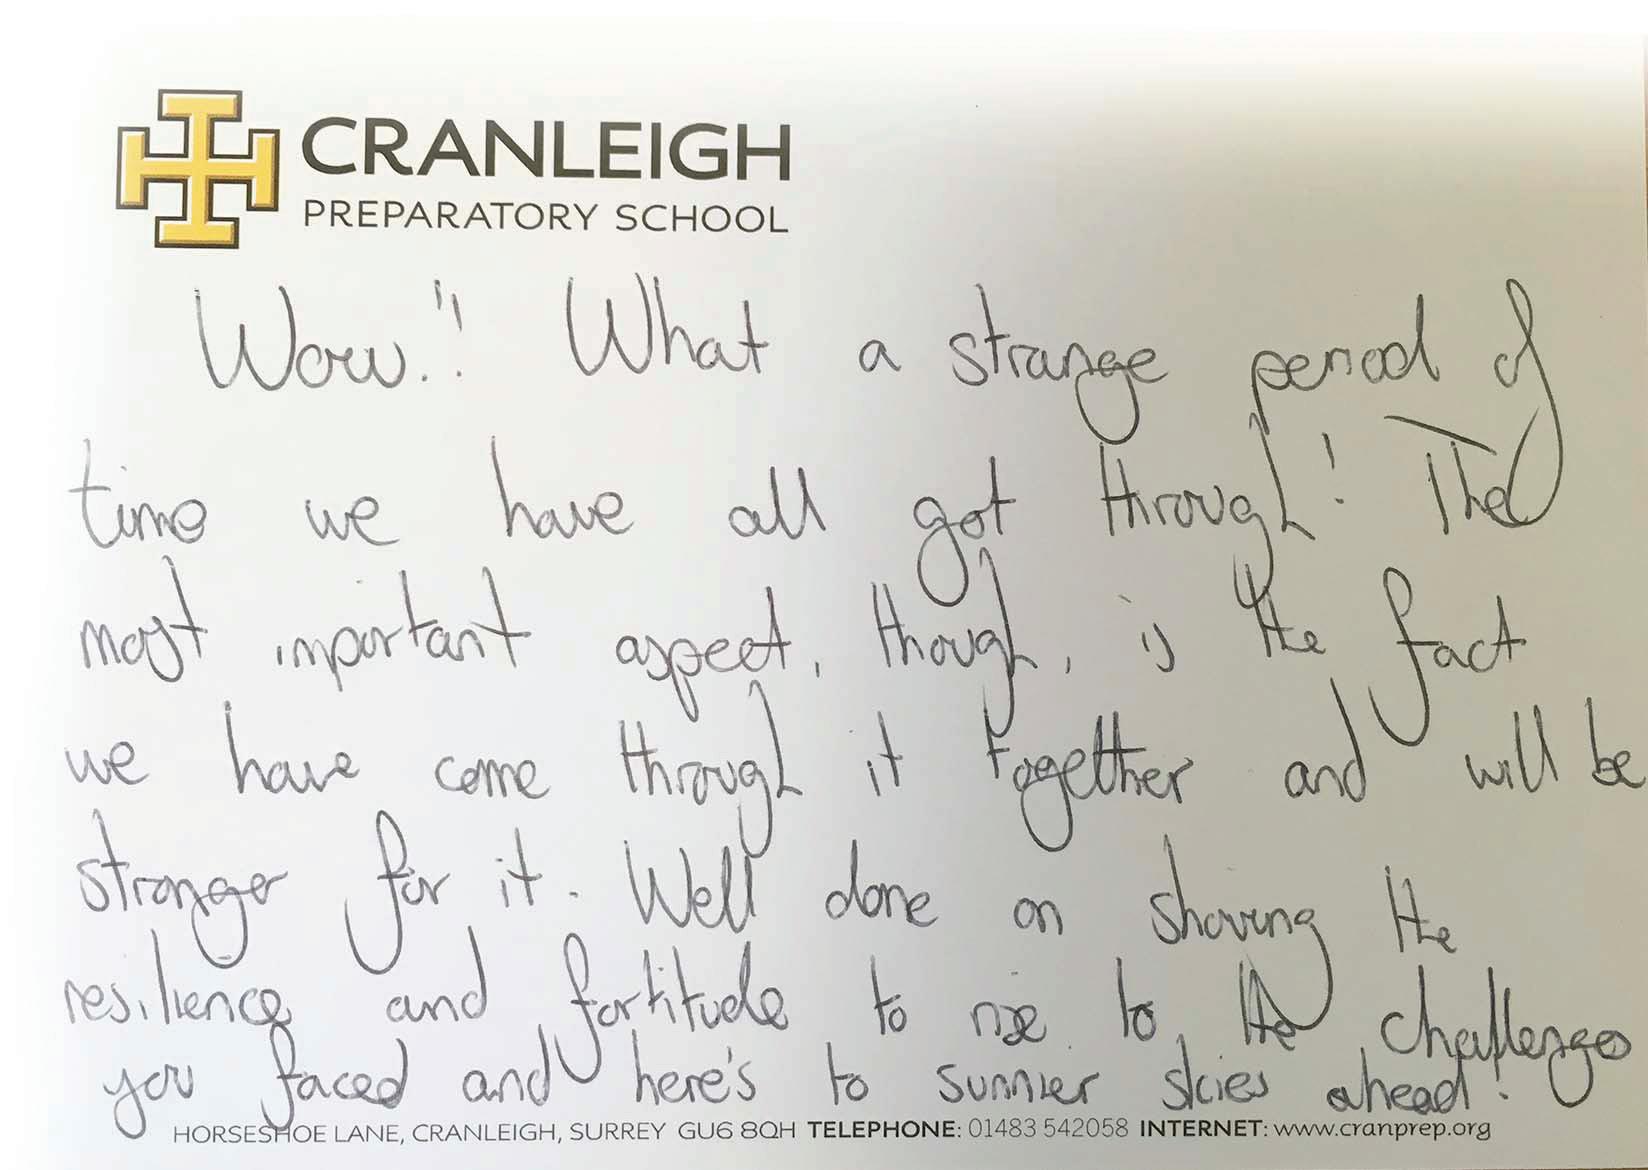 CRANLEIGH
PREPARATORY SCHOOL
Wow!! What a strange period of
time we have all got through! The
most important aspect, though, is the fact
we have come through it together and will be
stronger for it. Well done on showing the
resilience and fortitude to rise to the challenges
you faced and here's to sunnier skies ahead!
HORSESHOE LANE, CRANLEIGH, SURREY GU6 8QH TELEPHONE: 01483 542058 INTERNET: www.cranprep.org